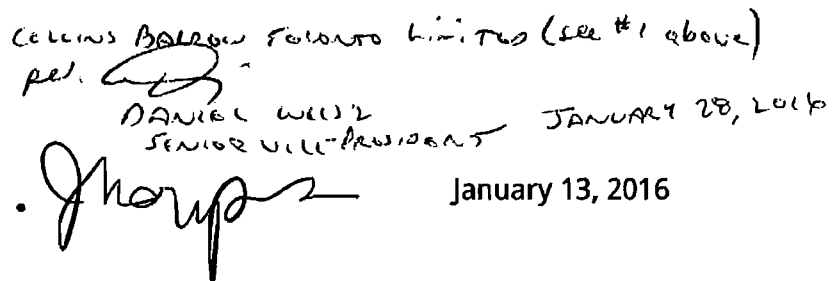 COLLINS BARROW TORONTO LIMITED (see #1 above)
per.
DANIEL WEISZ
SENIOR VICE-PRESIDENT JANUARY 28, 2016
January 13, 2016